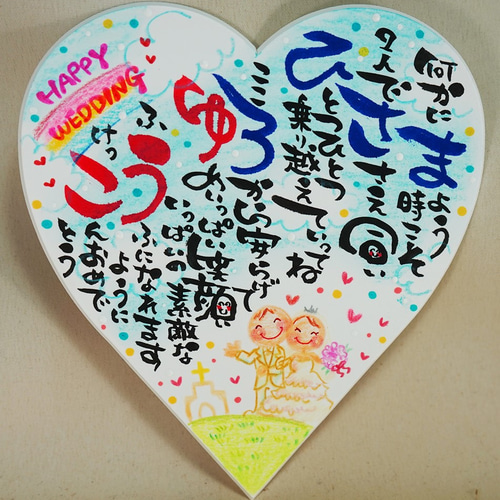 HAPPY
WEDDING
何かに
まよう
時こそ
2人で
ささえ合い
ひとつひとつ
乗り越えていってね
こころから安らげて
ゆめいっぱい笑顔
いっぱいの素敵な
ふうふになれます
ように
けっこんおめで
とう